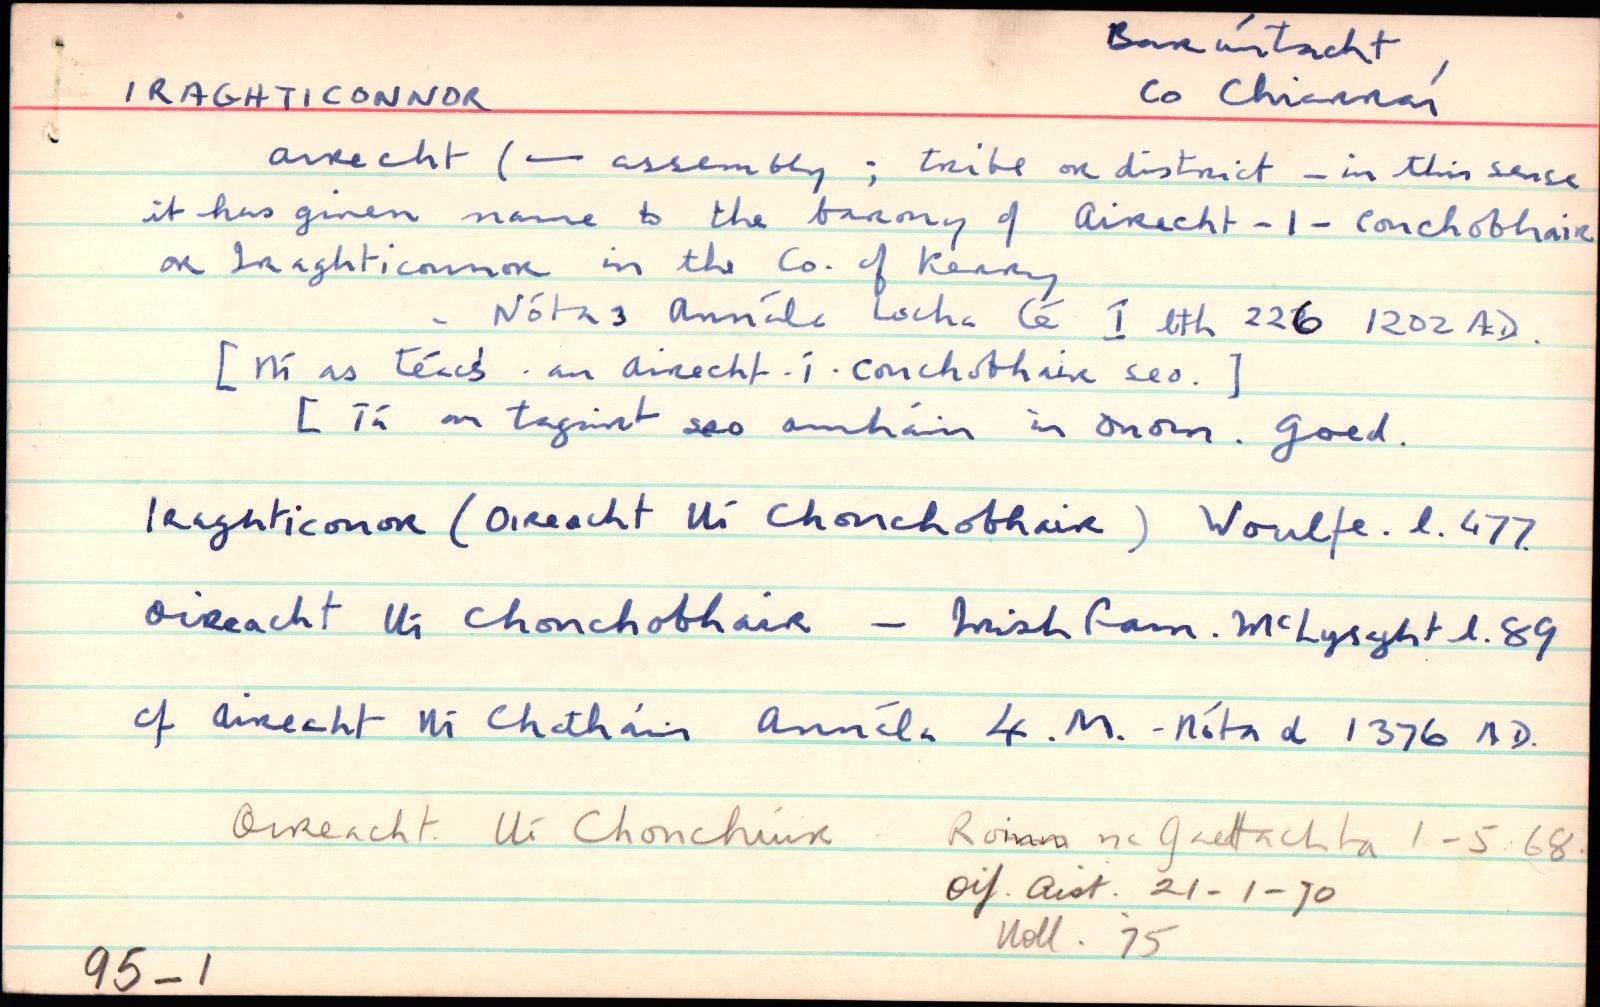 Barúntacht,
IRAGHTICONNOR
Co Chiarraí
airecht ( — assembly ; tribe or district – in this sense
it has given name to the barony of Airecht - I - Conchobhair
or Iraghticonnor in the Co. of Kerry
- Nóta 3 Annála Locha Cé I lth 226 1202 AD.
[ Ní as téacs an Airecht . í . Conchobhair seo. ]
[ Tá an tagairt seo amháin in Onom. Goed.
Iraghticonor (Oireacht Uí Chonchobhair) Woulfe. l. 477.
Oireacht Uí Chonchobhair — Irish Fam. McLysaght l. 89
cf Airecht Uí Chatháin Annála 4. M. - Nóta d 1376 AD.
Oireacht Uí Chonchúir Roinn na Gaeltachta 1-5-68.
Oif. Aist. 21-1-70
Noll. '75
95-1